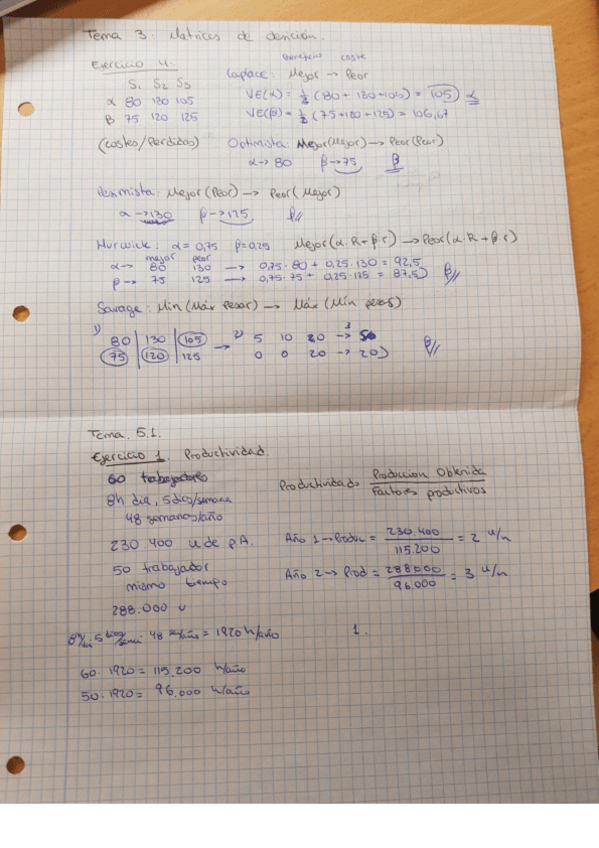 Tema 3: Matrices de decisión.
Ejercicio 4.
S1 S2 S3
α 80 130 105
β 75 120 125
(costes/Perdidas)
Beneficio coste
Laplace: Mejor → Peor
VE(α) = 1/3 (80 + 130 + 105) = 105) α
VE(β) = 1/3 (75+120+125) = 106,67
Optimista: Mejor(Mejor) → Peor(Peor)
α → 80 β → 75 β
Pesimista: Mejor (Peor) → Peor (Mejor)
α → 130 β → 125 β//
Hurwick: α = 0,75 β = 0,25 Mejor(α·R + β·r) → Peor(α·R + β·r)
mejor peor
α → 80 130 → 0,75·80 + 0,25·130 = 92,5
β → 75 125 → 0,75·75 + 0,25·125 = 87,5) β//
Savage: Min (Máx Pesar) → Máx (Mín pesar)
1) 80 | 130 | 105 → 2) 5 10 20 →
75 | 120 | 125 0 0 20 → 20) β//
Tema 5.1.
Ejercicio 1. Productividad.
60 trabajadores
8h dia, 5dias/semana
48 semanas/año
230.400 u de PA.
50 trabajador
mismo tiempo
288.000 u
Productividad = Produccion Obtenida / Factores productivos
Año 1 → Produc = 230.400 / 115.200 = 2 u/h
Año 2 → Prod = 288000 / 96.000 = 3 u/h
8h/dia · 5 dias/sema · 48 sem/año = 1920 h/año
1.
60 · 1920 = 115.200 h/año
50 · 1920 = 96.000 h/año